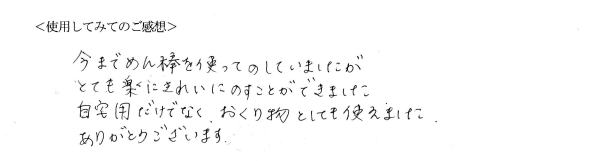 ＜使用してみてのご感想＞
今までめん棒を使ってのしていましたが
とても楽にきれいにのすことができました
自宅用だけでなく、おくり物としても使えました。
ありがとうございます。